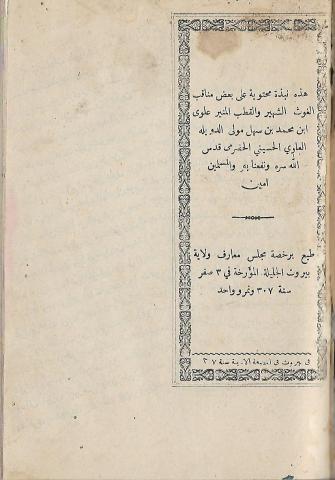 هذه نبذة محتوية على بعض مناقب
الغوث الشهير والقطب المنير علوى
ابن محمد بن سهل مولى الدويله
العلوي الحسيني الحضرمى قدس
الله سره ونفعنا به والمسلمين
امين
طبع برخصة مجلس معارف ولاية
بيروت الجليلة المؤرخة في ٣ صفر
سنة ٣٠٧ ونمرو واحد
في بيروت في سنة